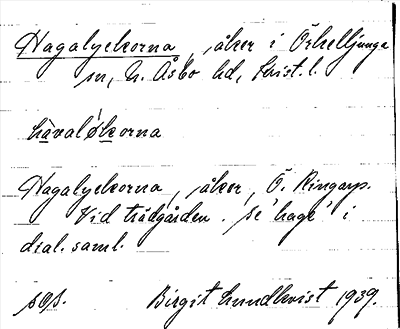 Hagalyckorna, åker i Örkelljunga
sn, N. Åsbo hd, Krist. l.
hàvaløkorna
Hagalyckorna, åker, Ö. Ringarp.
Vid trädgården. se 'hage' i
dial. saml.
Birgit Lundkvist 1939.